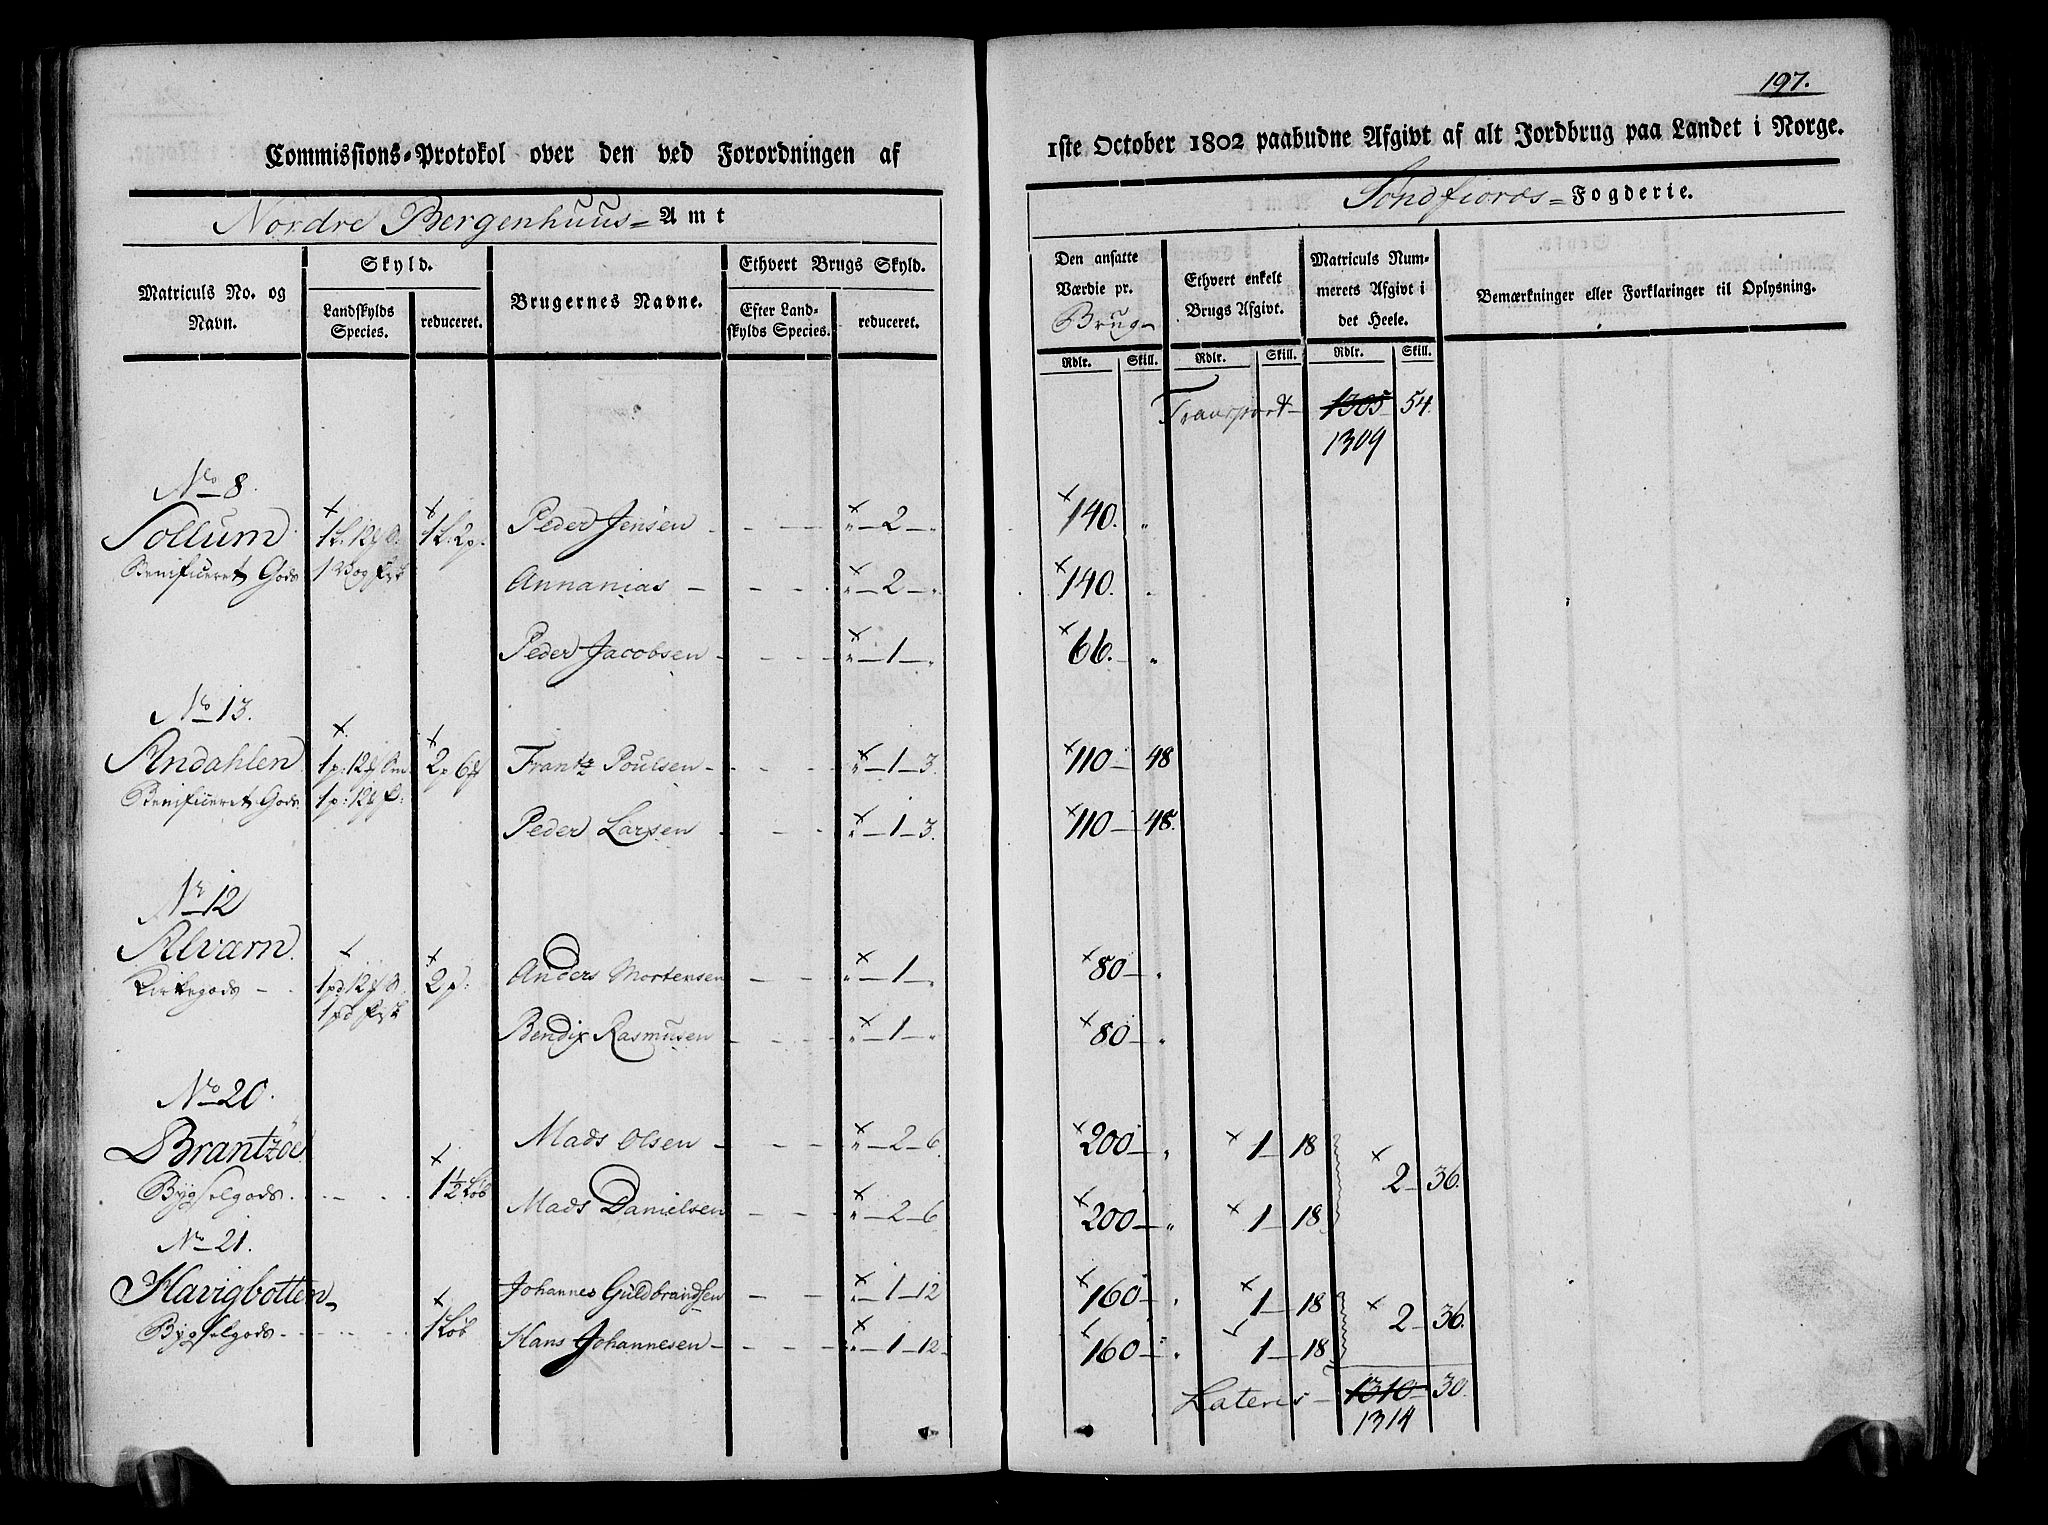 197.
Commissions-Protokol over den ved Forordningen af
1ste October 1802 paabudne Afgivt af alt Jordbrug paa Landet i Norge.
Nordre Bergenhuus- Amt
Søndfiords- Fogderie.
Matriculs No. og Navn.
Skyld.
Landskylds Species.
reduceret.
Brugernes Navne.
Ethvert Brugs Skyld.
Efter Landskylds Species.
reduceret.
Den ansatte Værdie pr. Brug
Ethvert enkelt Brugs Afgivt.
Matriculs Nummerets Afgivt i det Heele.
Bemærkninger eller Forklaringer til Oplysning.
Rdlr. Skill. Rdlr. Skill. Rdlr. Skill.
Transport 1305 54.
1309
No 8.
Sollum Peder Jensen - 2 - 140.
Benificeret Gods Annanias - 2 - 140.
Peder Jacobsen - 1 - 66.
No 13.
Andahlen Frantz Poulsen - 1 - 3. 110 - 48
Benificeret Gods Peder Larsen - 1 - 3. 110 - 48.
No 12
Alvarn Anders Mortensen - 1 - 80
Kirkegods 2 p: Bendix Rasmusen - 1 - 80
No 20.
Brantzöe Mads Olsen - 2 - 6. 200 1 - 18
Bygselgods 1½ Løb 2 - 36.
Mads Danielsen - 2 - 6 200 1 - 18
No 21.
Havigbotten Johannes Guldbrandsen - 1 - 12 160 1 - 18
Bygselgods 1 Løb 2 - 36.
Hans Johannesen - 1 - 12 160 1 - 18
Lateris 1310 - 30.
1314